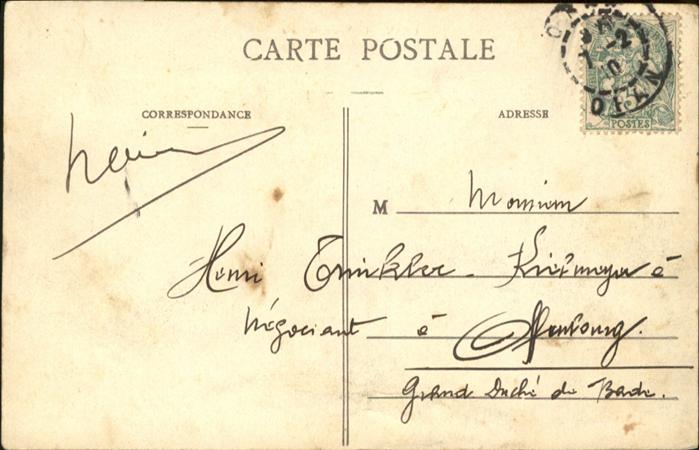 CARTE POSTALE
CORRESPONDANCE
ADRESSE
M Monsieur
Henri Trinkler - Kiefmeyer à
Négociant à
Grand Duché de Bade.
POSTES